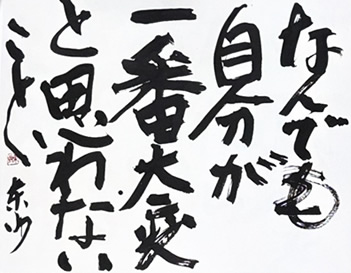 なんでも
自分が
一番大変
と思わない
こと